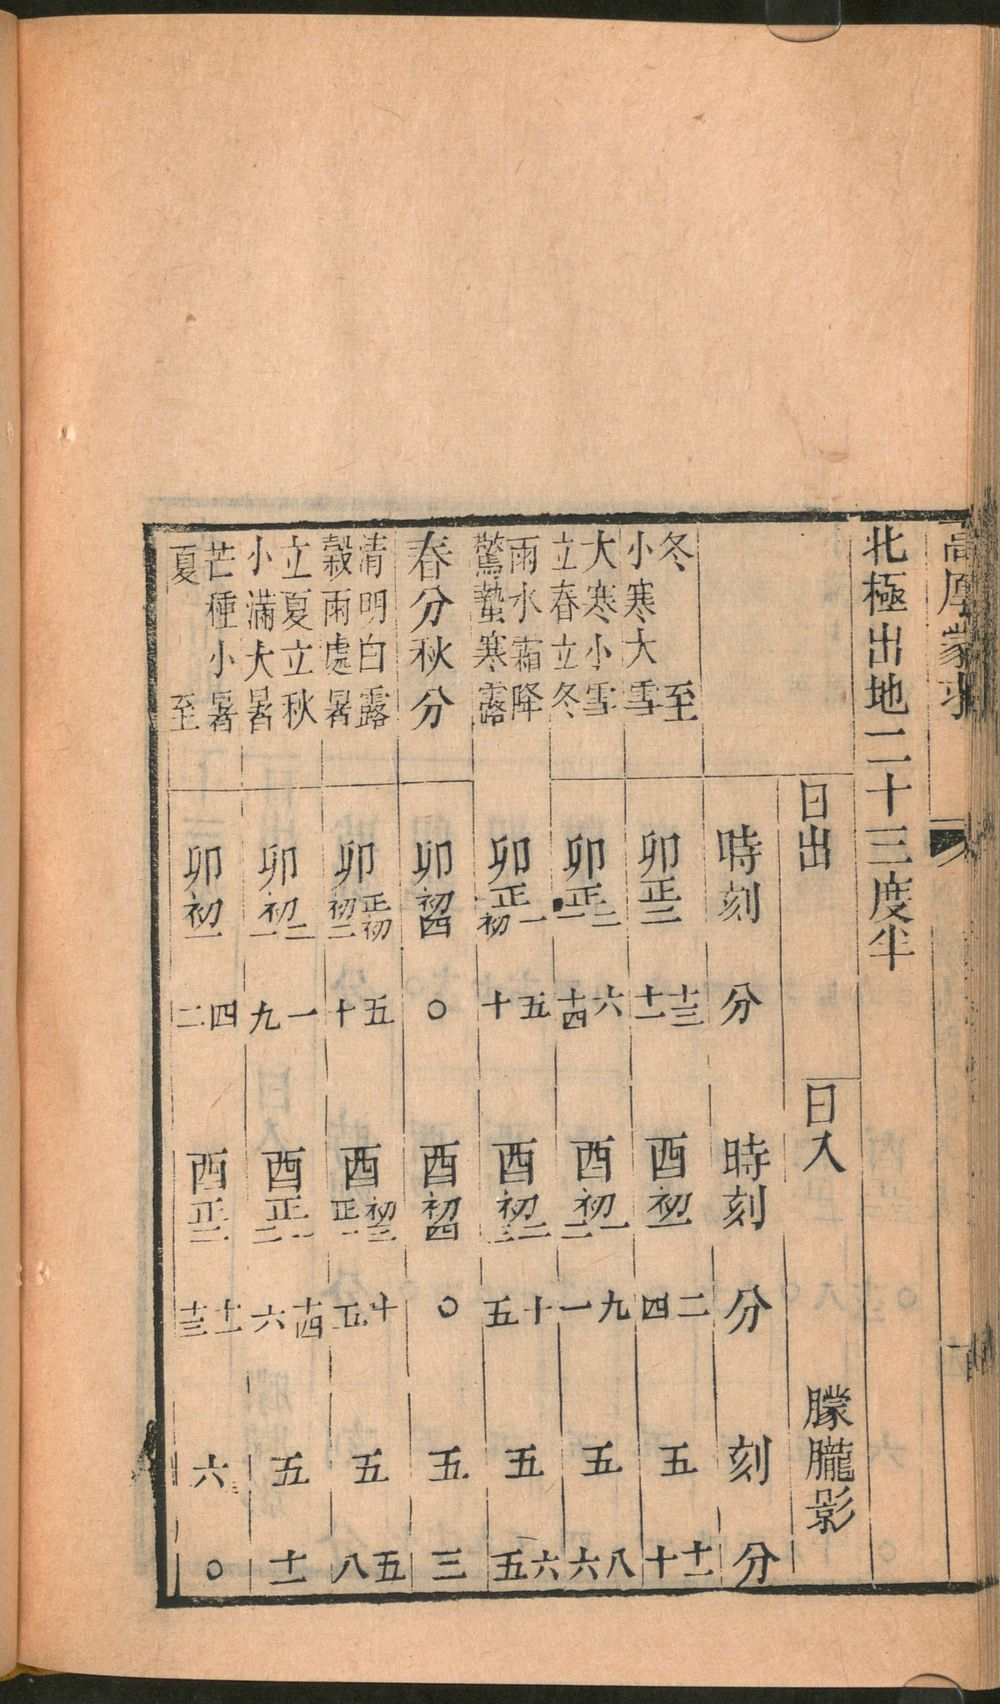 高厚蒙求
北極出地二十三度半
日出 日入 朦朧影
時刻 分 時刻 分 刻 分
冬至 小寒大雪 卯正二 十三 十一 酉初一 二 四 五 十一 十
大寒小雪 立春立冬 卯正二 一 六 十四 酉初一 二 九 一 五 八 六
雨水霜降 驚蟄寒露 卯正一 初 五 十 酉初二 三 十 五 五 六 五
春分秋分 卯初四 〇 酉初四 〇 五 三
清明白露 穀雨處暑 卯正初 初二 五 十 酉初三 正一 十 五 五 五 八
立夏立秋 小滿大暑 卯初二 一 一 九 酉正一 二 十四 六 五 十一
芒種小暑 夏至 卯初一 四 二 酉正二 十一 十三 六 〇